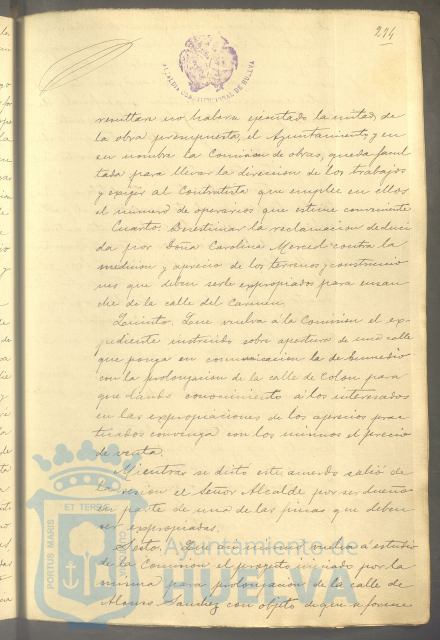 214
ALCALDIA CONSTITUCIONAL DE HUELVA
resultare no haberse ejecutado la mitad de
la obra presupuesta, el Ayuntamiento, y en
su nombre la Comision de obras, queda facul
tada para llevar la direccion de los trabajos
y exijir al Contratista que emplee en ellos
el número de operarios que estime conveniente
Cuarto. Desestimar la reclamacion deduci
da por Doña Carolina Merced contra la
medicion y aprecio de los terrenos y construccio
nes que deben serle expropiados para ensan
che de la calle del Carmen.
Quinto. Que vuelva á la Comision el ex-
pediente instruido sobre apertura de una calle
que ponga en comunicacion la de
con la prolongacion de la calle de Colon para
que dando conocimiento á los interesados
en las expropiaciones de los aprecios prac
ticados convenga con los mismos el precio
de venta.
Mientras se dictó este acuerdo salió de
la sesion el Señor Alcalde por ser dueño
en parte de una de las fincas que deben
ser expropiadas.
Sesto. Que vuelva á estudio
de la Comision el proyecto iniciado por la
misma para prolongacion de la calle de
Alonso Sanchez con objeto de que informe
PORTUS MARIS ET TERRAE CUSTODIA
Ayuntamiento de
HUELVA